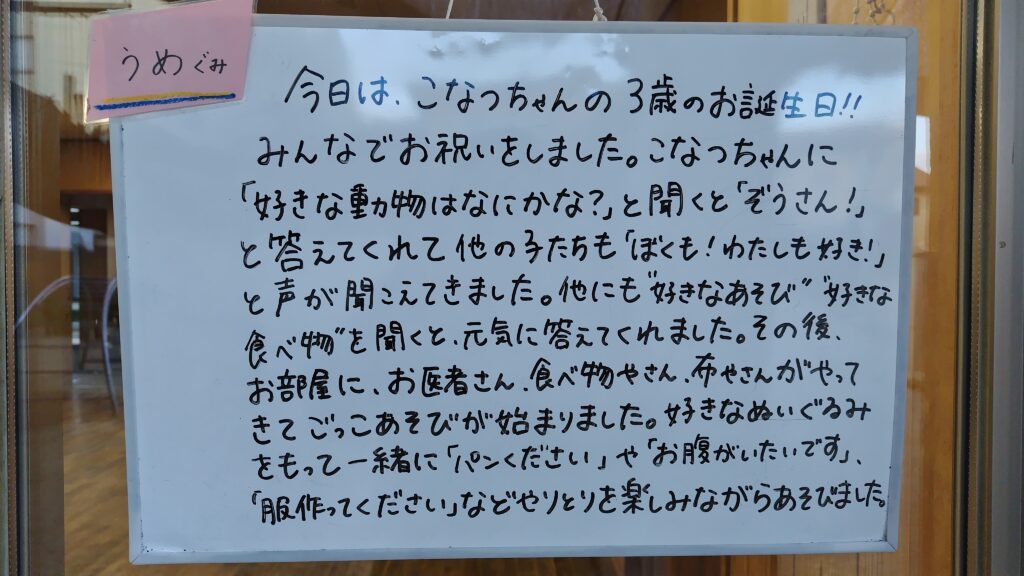 うめぐみ
今日は、こなつちゃんの3歳のお誕生日!!
みんなでお祝いをしました。こなつちゃんに
「好きな動物はなにかな?」と聞くと「ぞうさん!」
と答えてくれて他の子たちも「ぼくも!わたしも好き!」
と声が聞こえてきました。他にも"好きなあそび""好きな
食べ物"を聞くと、元気に答えてくれました。その後、
お部屋に、お医者さん、食べ物やさん、布やさんがやって
きてごっこあそびが始まりました。好きなぬいぐるみ
をもって一緒に「パンください」や「お腹がいたいです」、
「服作ってください」などやりとりを楽しみながらあそびました。